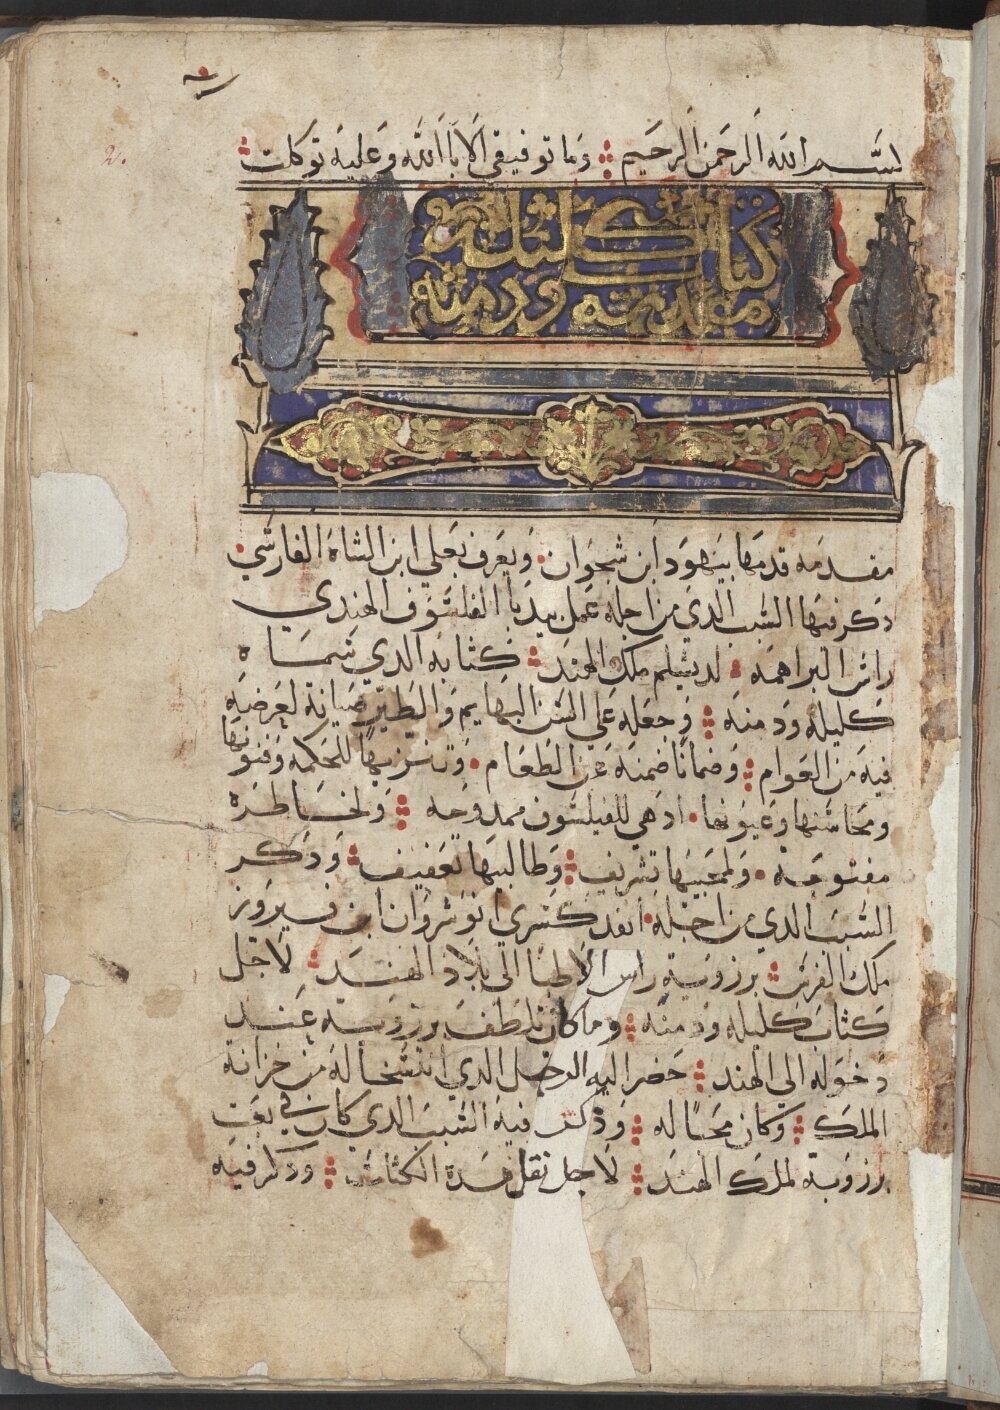 بسم الله الرحمن الرحيم وما توفيقي الا بالله وعليه توكلت
2.
كتاب كليله
مقدمة ودمنه
مقدمه قدمها بنهود ابن سجوان ويعرف بعلي ابن الشاه الفارسي
دكر فيها السبب الدي من اجله عمل بيدبا الفلسوف الهندي
راس البراهمه لدبسلم ملك الهند كتابه الدي سماه
كليله ودمنه وجعله علي السن البهايم والطير صيانة لغرضه
فيه من العوام وضمانا ضمنه عن الطغام وتنزيها للحكمه وفنونها
ومحاسنها وعيونها ادهي للفيلسوف ممدوحه ولخاطره
مفتوحه ولمحبيها تشريف وطالبيها تعفيف ودكر
السبب الدي من اجله انفد كسري انوشروان ابن فيروز
ملك الفرس برزويه راس الاطبا الي بلاد الهند لاجل
كتاب كليله ودمنه وما كان تلطف برزويه عند
دخوله الي الهند حضر اليه الرجل الدي انتسخا له من خزانة
الملك وكان محبا له ودكر فيه السبب الدي كان في بعت
برزوية لملك الهند لاجل نقل هده الكتاب ودكر فيه